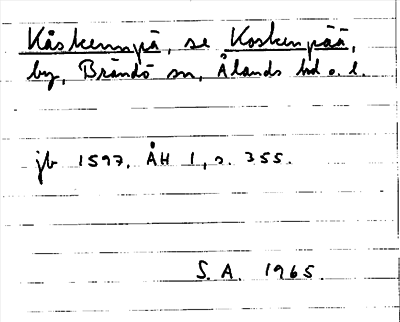 Kåskennpä, se Koskenpää,
by, Brändö sn, Ålands hd o. l.
jb 1597, ÅH 1, s. 355.
S. A. 1965.